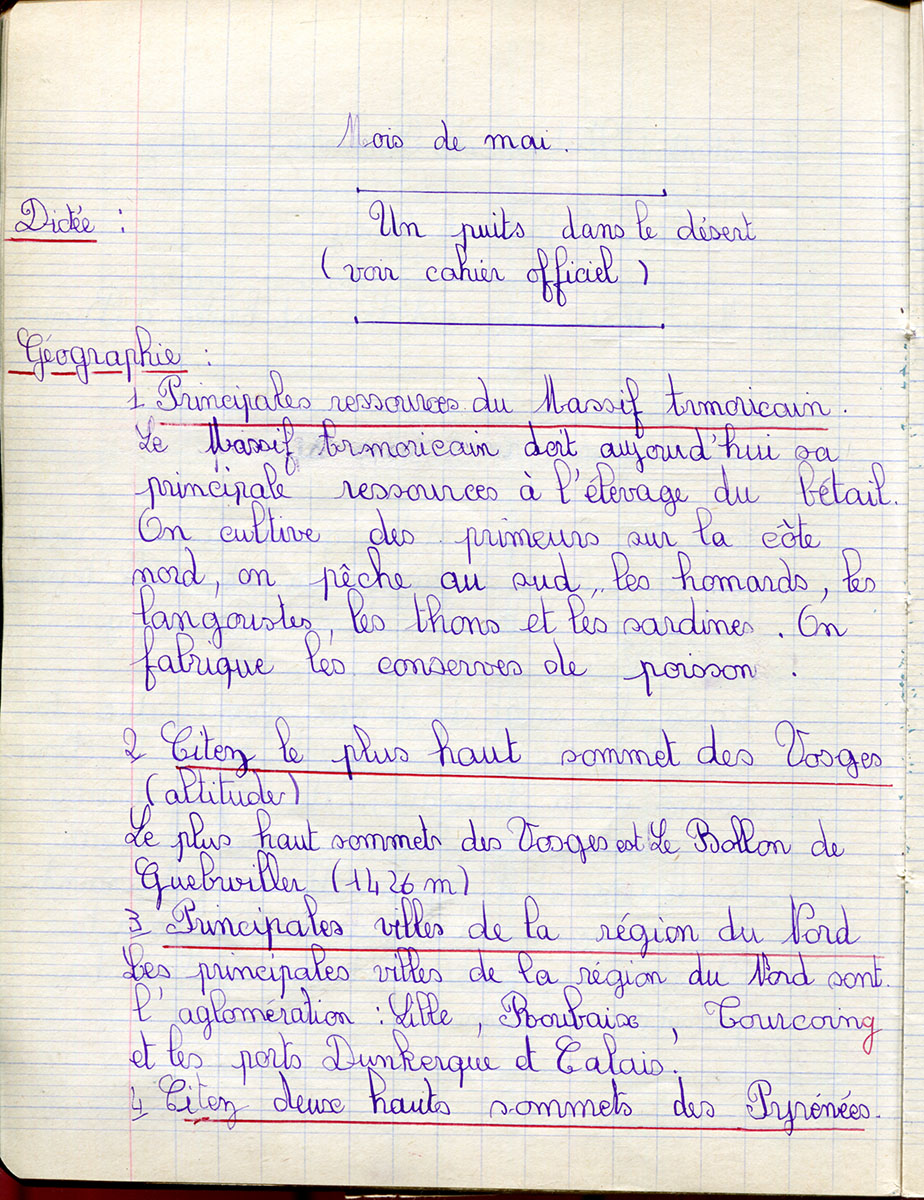 Mois de mai.
Dictée : Un puits dans le désert
(voir cahier officiel)
Géographie :
1 Principales ressources du Massif Armoricain.
Le Massif Armoricain doit aujourd'hui sa
principale ressources à l'élevage du bétail.
On cultive des primeurs sur la côte
nord, on pêche au sud, les homards, les
langoustes, les thons et les sardines. On
fabrique les conserves de poisson.
2 Citez le plus haut sommet des Vosges
(altitude)
Le plus haut sommets des Vosges est Le Ballon de
Guebwiller (1426 m)
3 Principales villes de la région du Nord
Les principales villes de la région du Nord sont
l'aglomération : Lille, Roubaix, Tourcoing
et les ports Dunkerque et Calais.
4 Citez deux hauts sommets des Pyrénées.